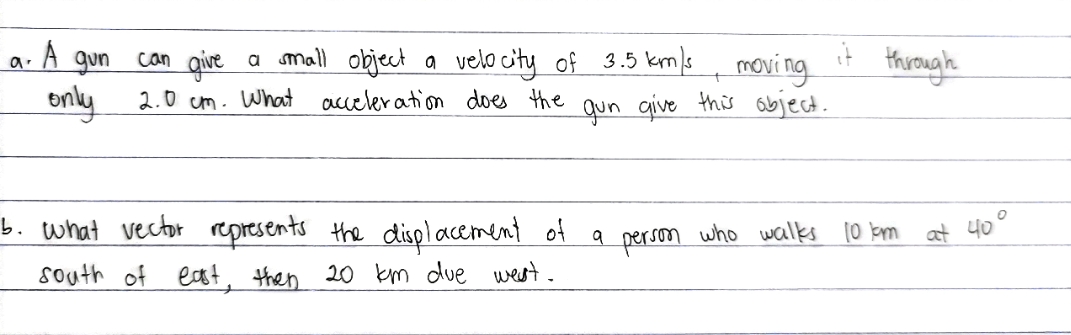 a. A gun can give a small object a velocity of 3.5 km/s, moving it through
only 2.0 cm. What acceleration does the gun give this object.
b. What vector represents the displacement of a person who walks 10 km at 40°
south of east, then 20 km due west.